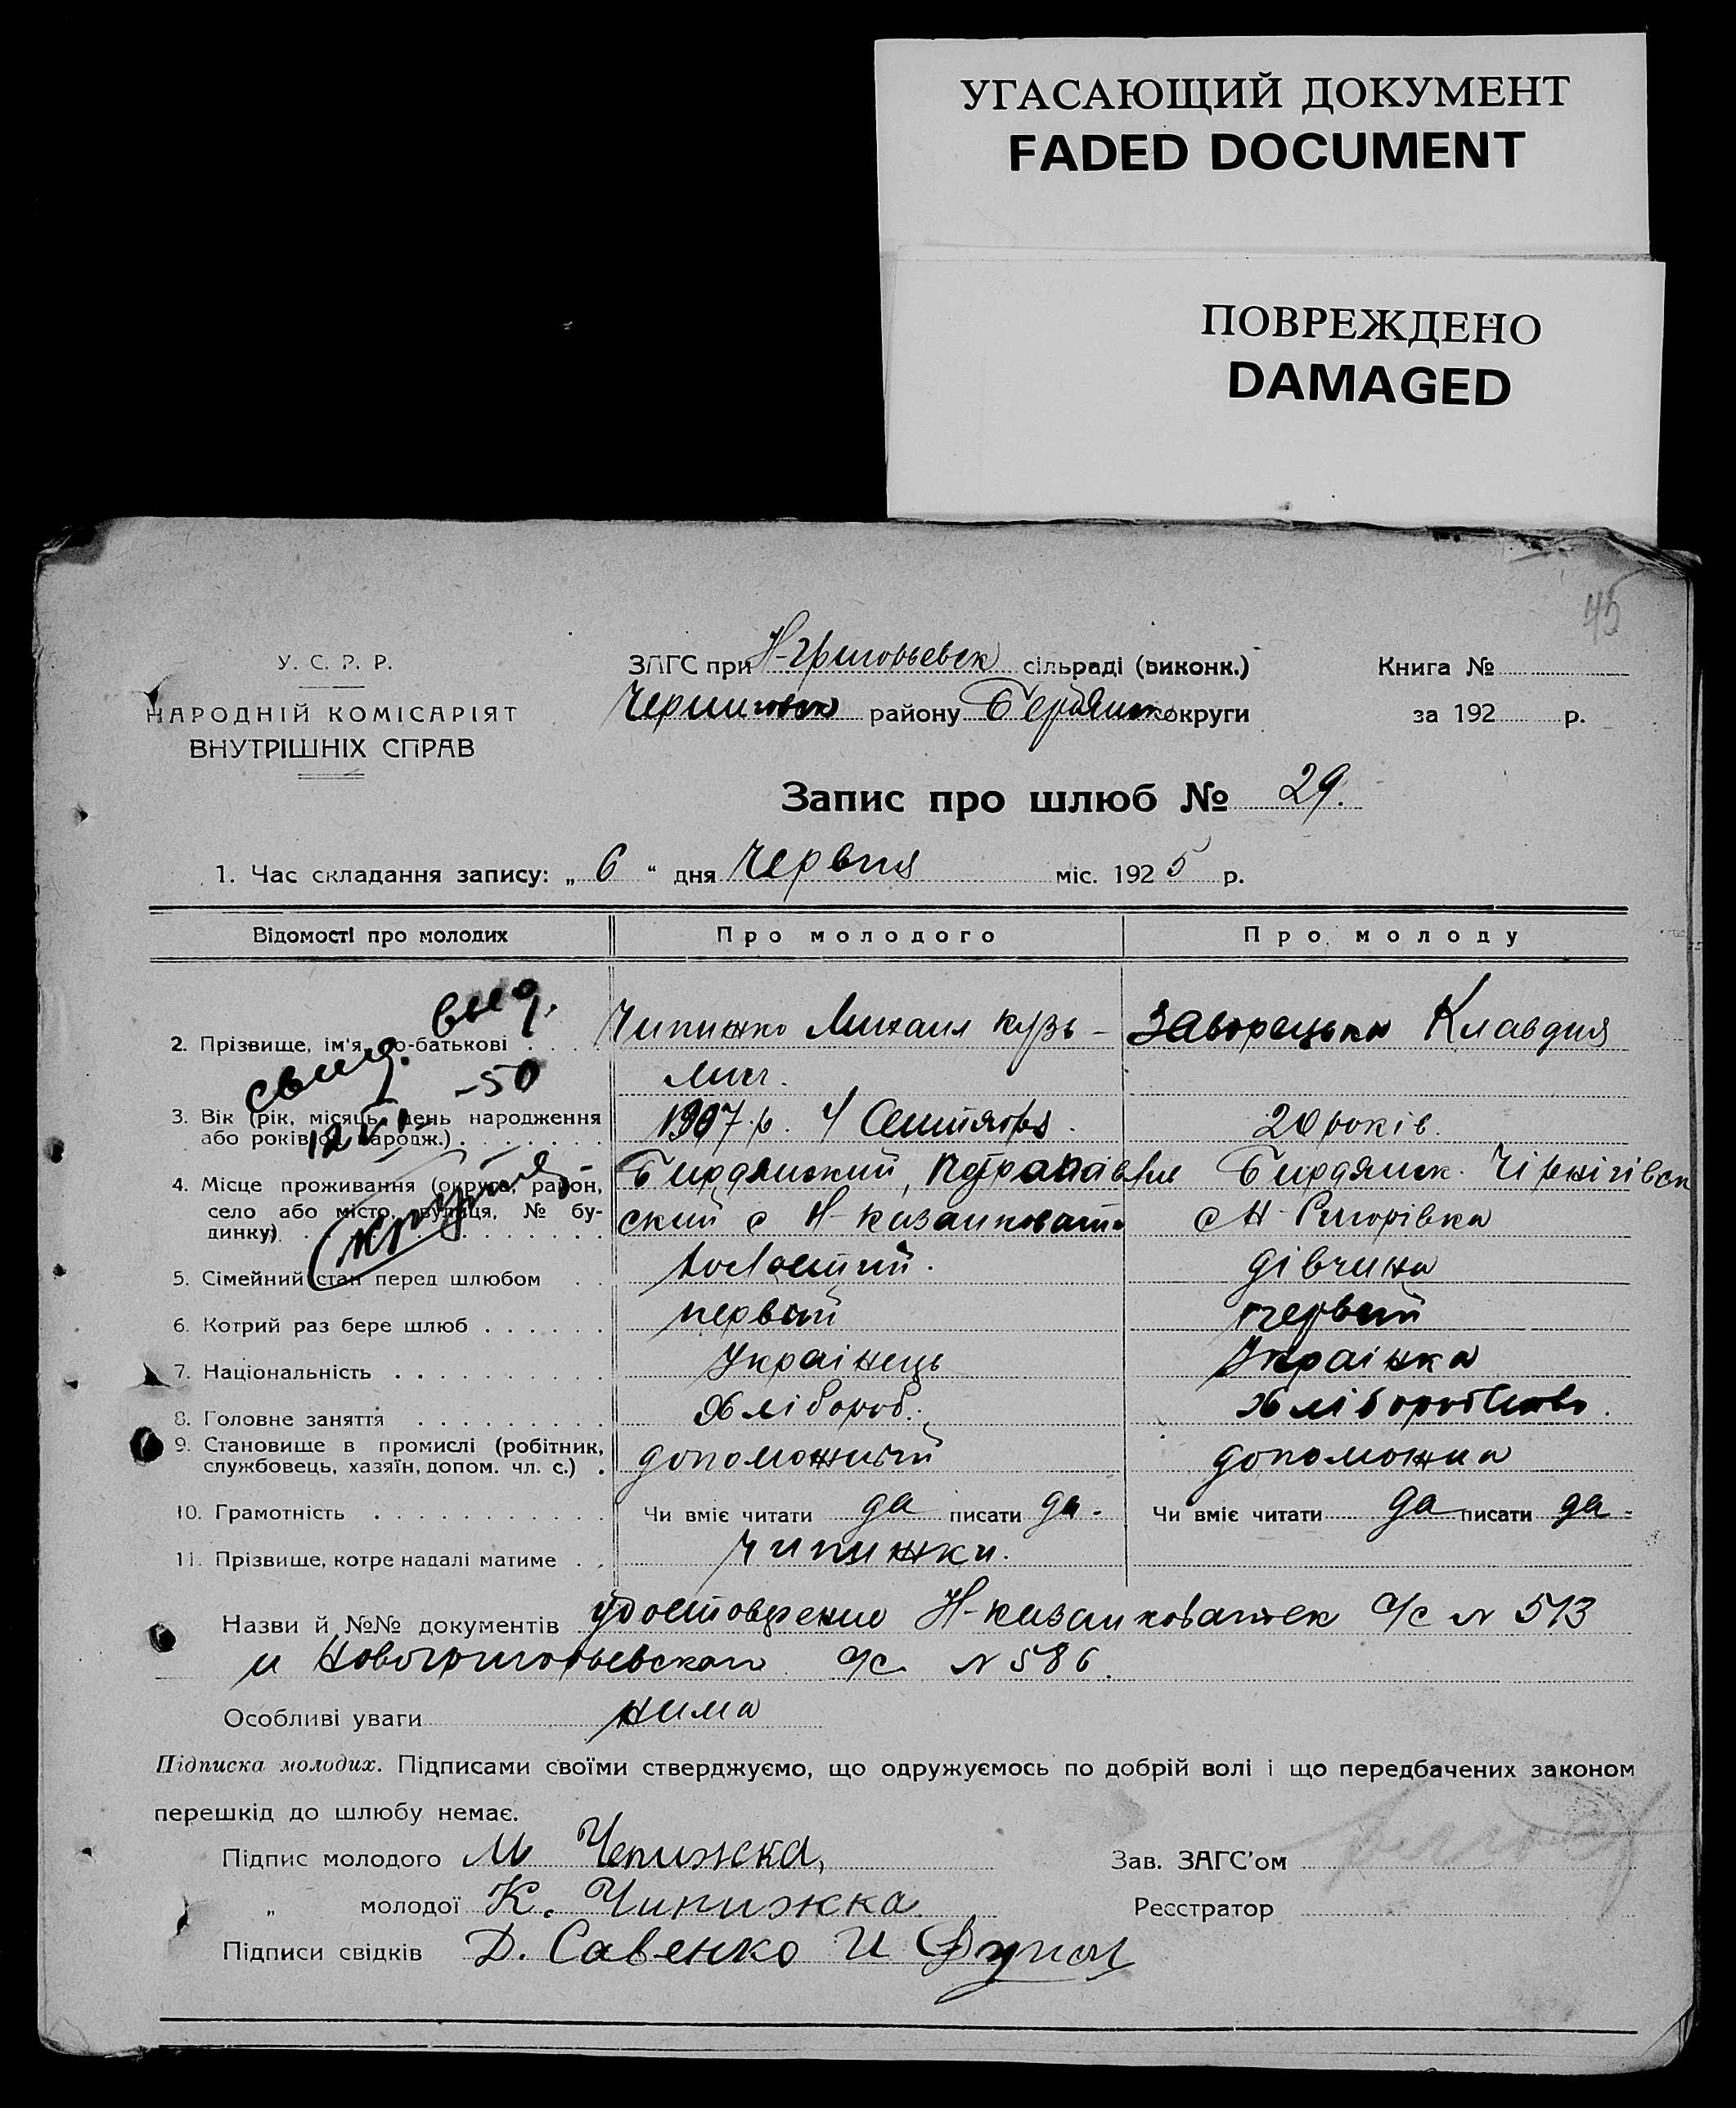 УГАСАЮЩИЙ ДОКУМЕНТ
FADED DOCUMENT
ПОВРЕЖДЕНО
DAMAGED
45
У. С. Р. Р.
НАРОДНІЙ КОМІСАРІЯТ
ВНУТРІШНІХ СПРАВ
ЗАГС при Н-Григорьевск сільраді (виконк.)
Книга №
Черниговск района Бердянск округи
за 192 р.
Запис про шлюб № 29.
1. Час складання запису: „ 6 “ дня Червня міс. 1925 р.
Відомості про молодих
Про молодого
Про молоду
2. Прізвище, ім'я, по-батькові
Чипижко Михаил Кузь-
мич.
Заворецька Клавдия
свид. выд.
-50
3. Вік (рік, місяць, день народження
або років од народж.)
1907.р. 4 Сентября.
20 років.
4. Місце проживання (округа, район,
село або місто, вулиця, № бу-
динку)
Бирдянский,
ский с Н-Казанковати
Бирдянск. Чірнігівск
с Н-Григорівка
5. Сімейний стан перед шлюбом
холостий.
дівчина
6. Котрий раз бере шлюб
первый
первый
7. Національність
Українець
Українка
8. Головне заняття
Хлібороб.
Хліборобство.
9. Становище в промислі (робітник,
службовець, хазяїн, допом. чл. с.)
допоможный
допоможна
10. Грамотність
Чи вміє читати да писати да.
Чи вміє читати да писати да
11. Прізвище, котре надалі матиме
Чипижки.
Назви й №№ документів удостоверение Н-Казанковатск с/с N 513
и Новогригорьевскаго с/с N 586.
Особливі уваги нима
Підписка молодих. Підписами своїми стверджуємо, що одружуємось по добрій волі і що передбачених законом
перешкід до шлюбу немає.
Підпис молодого М Чепижка,
Зав. ЗАГС'ом
„ молодої К. Чипижка
Реєстратор
Підписи свідків Д. Савенко И